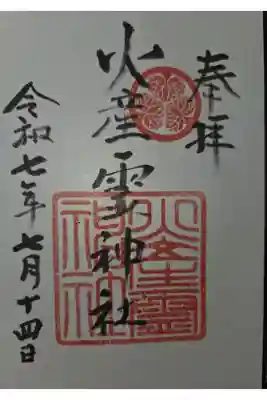 奉拝
火産霊神社
令和七年七月十四日
火産霊神社